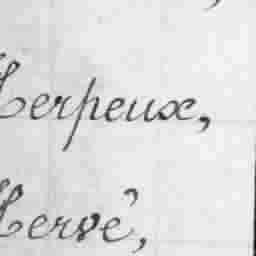 Herpeux,
Hervé,